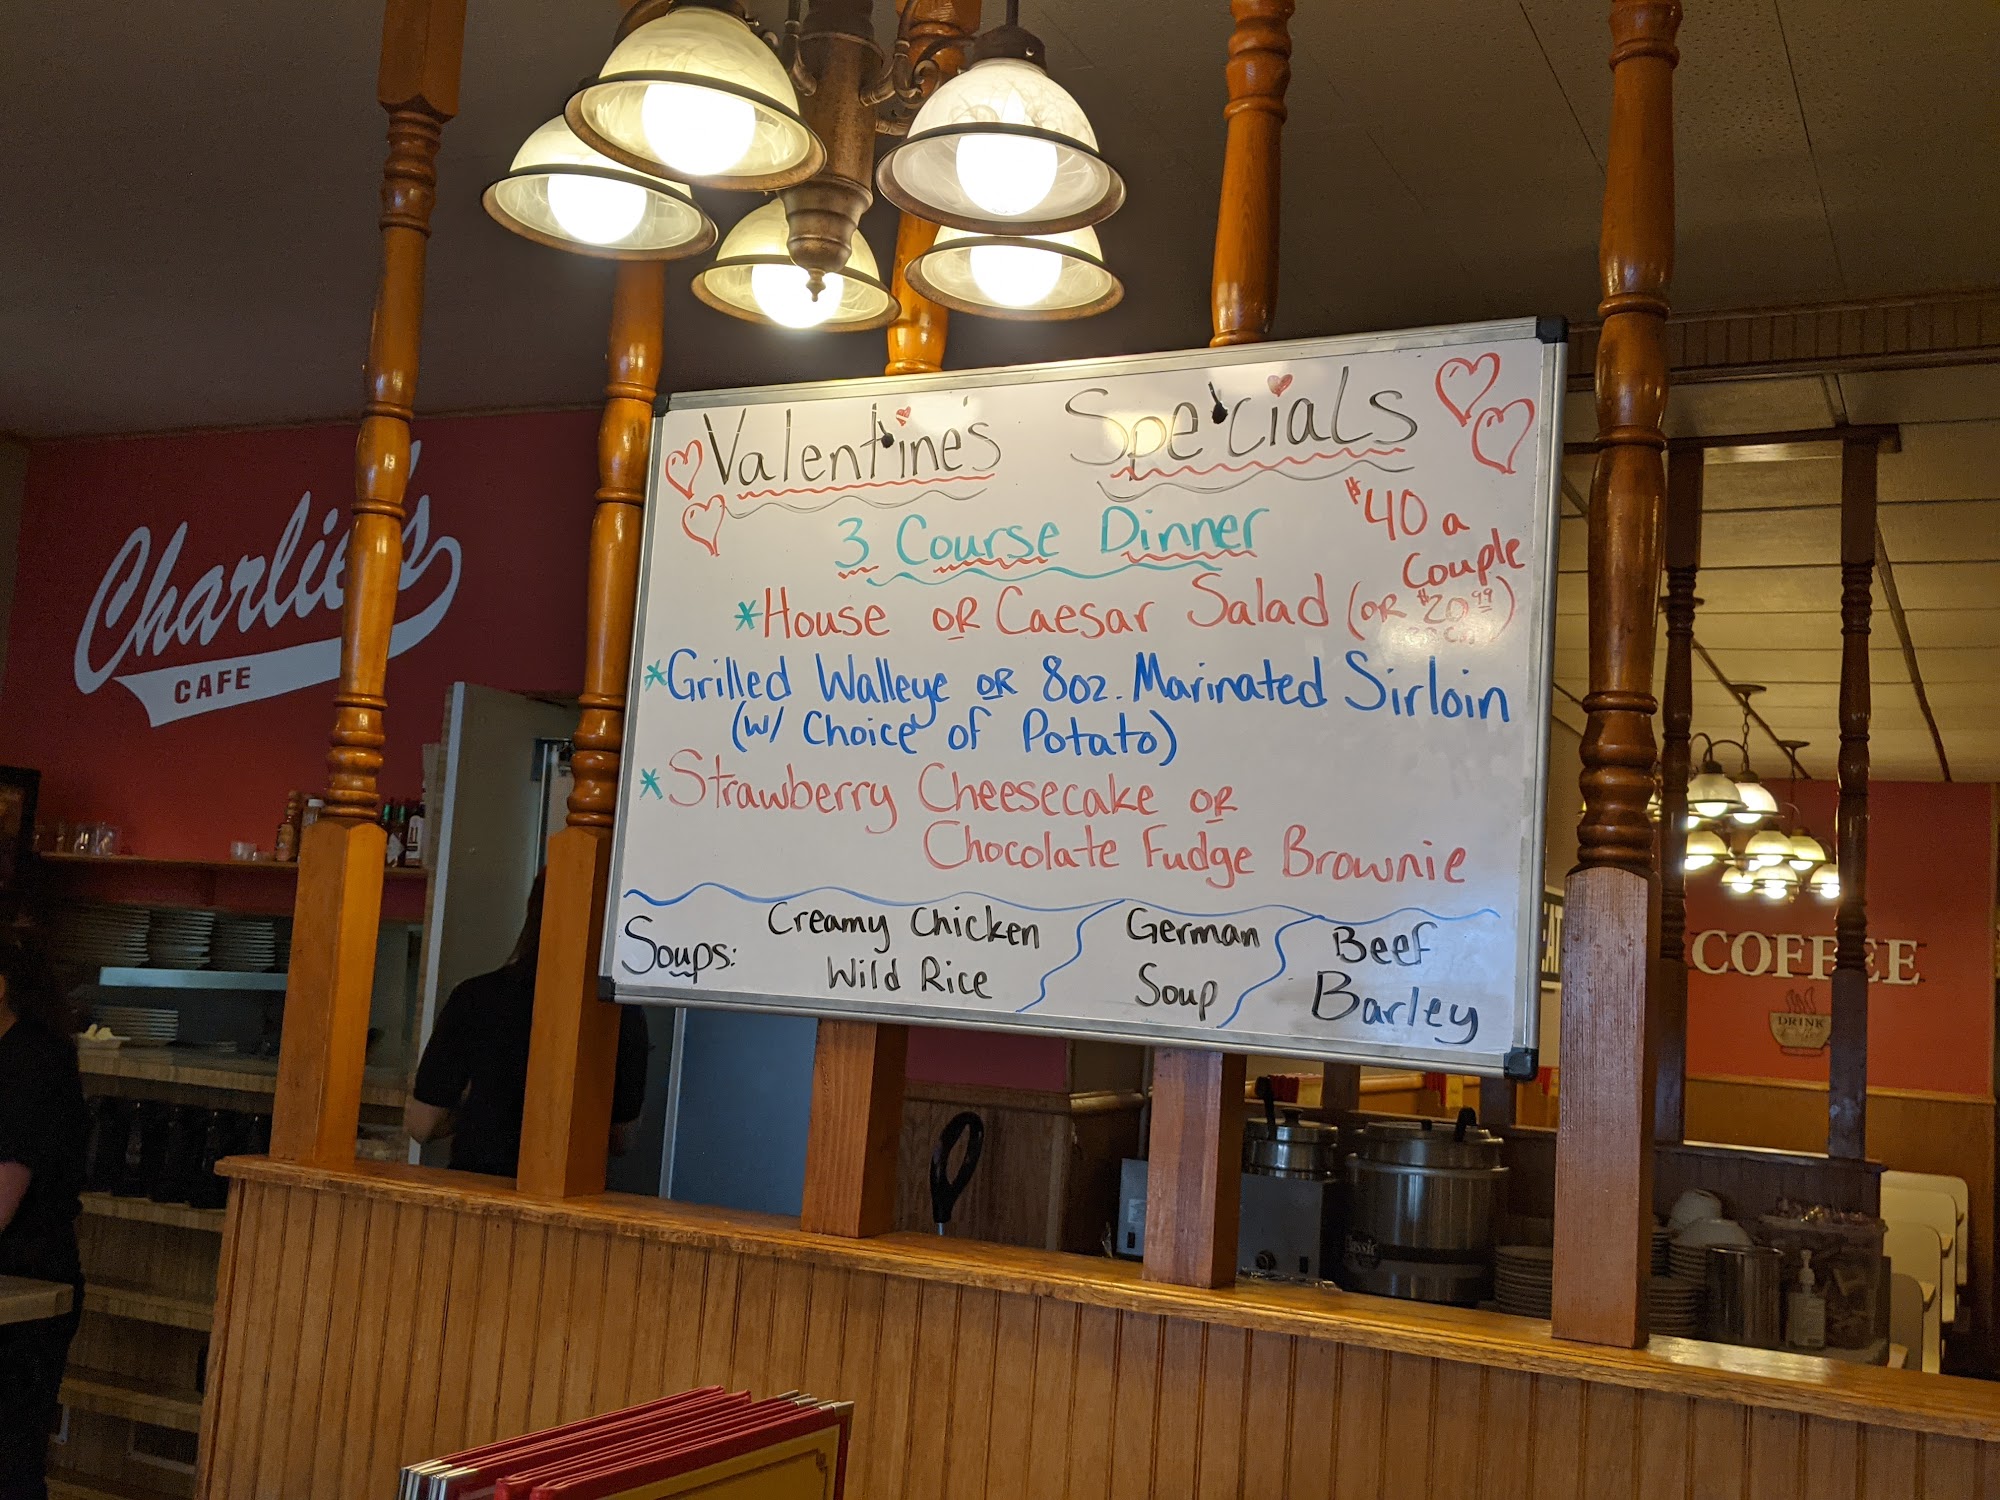 Charlie's
CAFE
Valentine's Specials
3 Course Dinner
$40 a
Couple
*House OR Caesar Salad (OR $20.99
*Grilled Walleye OR 8oz. Marinated Sirloin
(w/ Choice of Potato)
*Strawberry Cheesecake OR
Chocolate Fudge Brownie
Soups:
Creamy Chicken
Wild Rice
German
Soup
Beef
Barley
EAT
COFFEE
DRINK